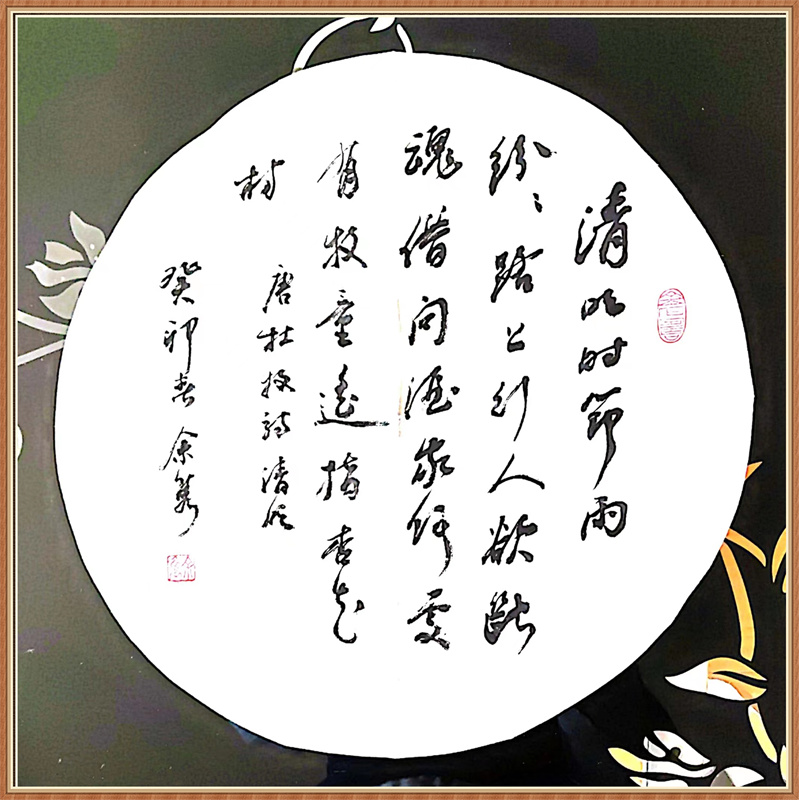 清明时節雨
紛〻路上行人欲斷
魂借问酒家何處
有牧童遙指杏花
村 唐杜牧詩清明
癸卯春 余